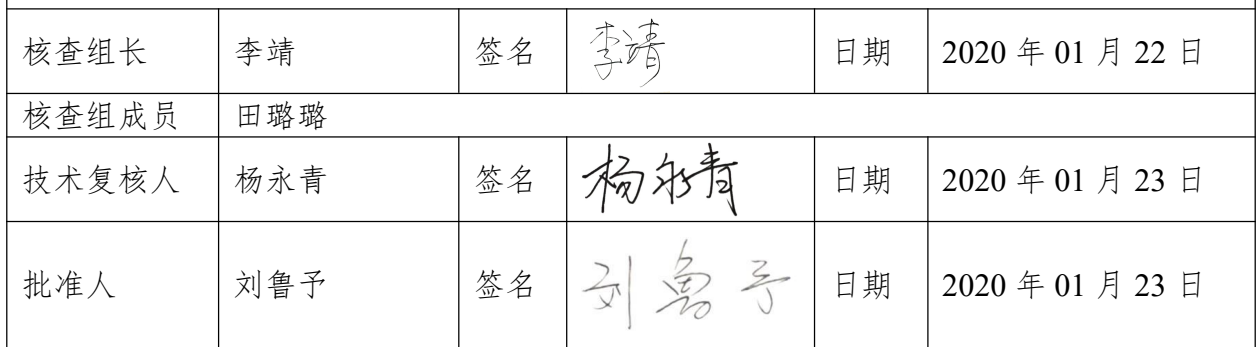 核查组长 李靖 签名 李靖 日期 2020 年 01 月 22 日
核查组成员 田璐璐
技术复核人 杨永青 签名 杨永青 日期 2020 年 01 月 23 日
批准人 刘鲁予 签名 刘鲁予 日期 2020 年 01 月 23 日